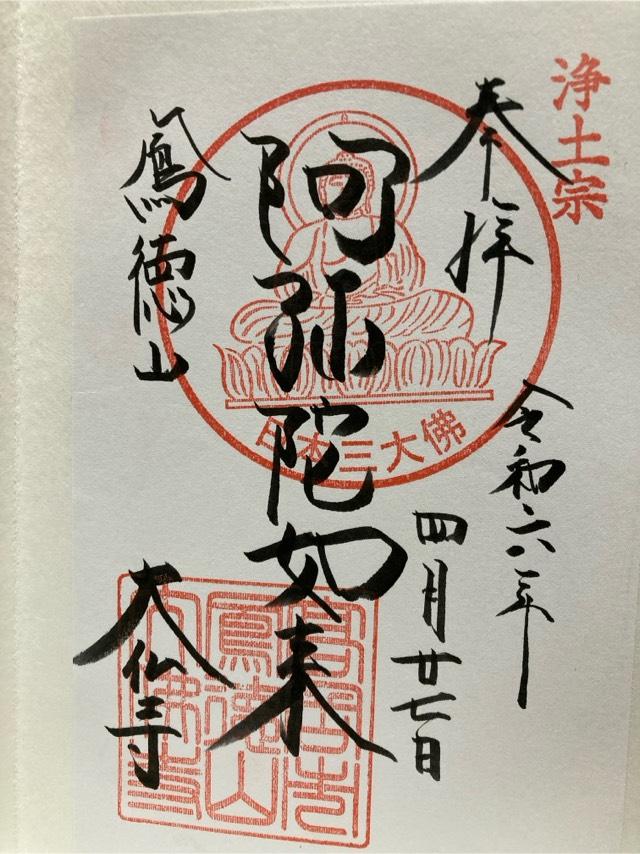 浄土宗
奉拝
令和六年
四月廿七日
阿弥陀如来
日本三大佛
鳳徳山
大仏寺